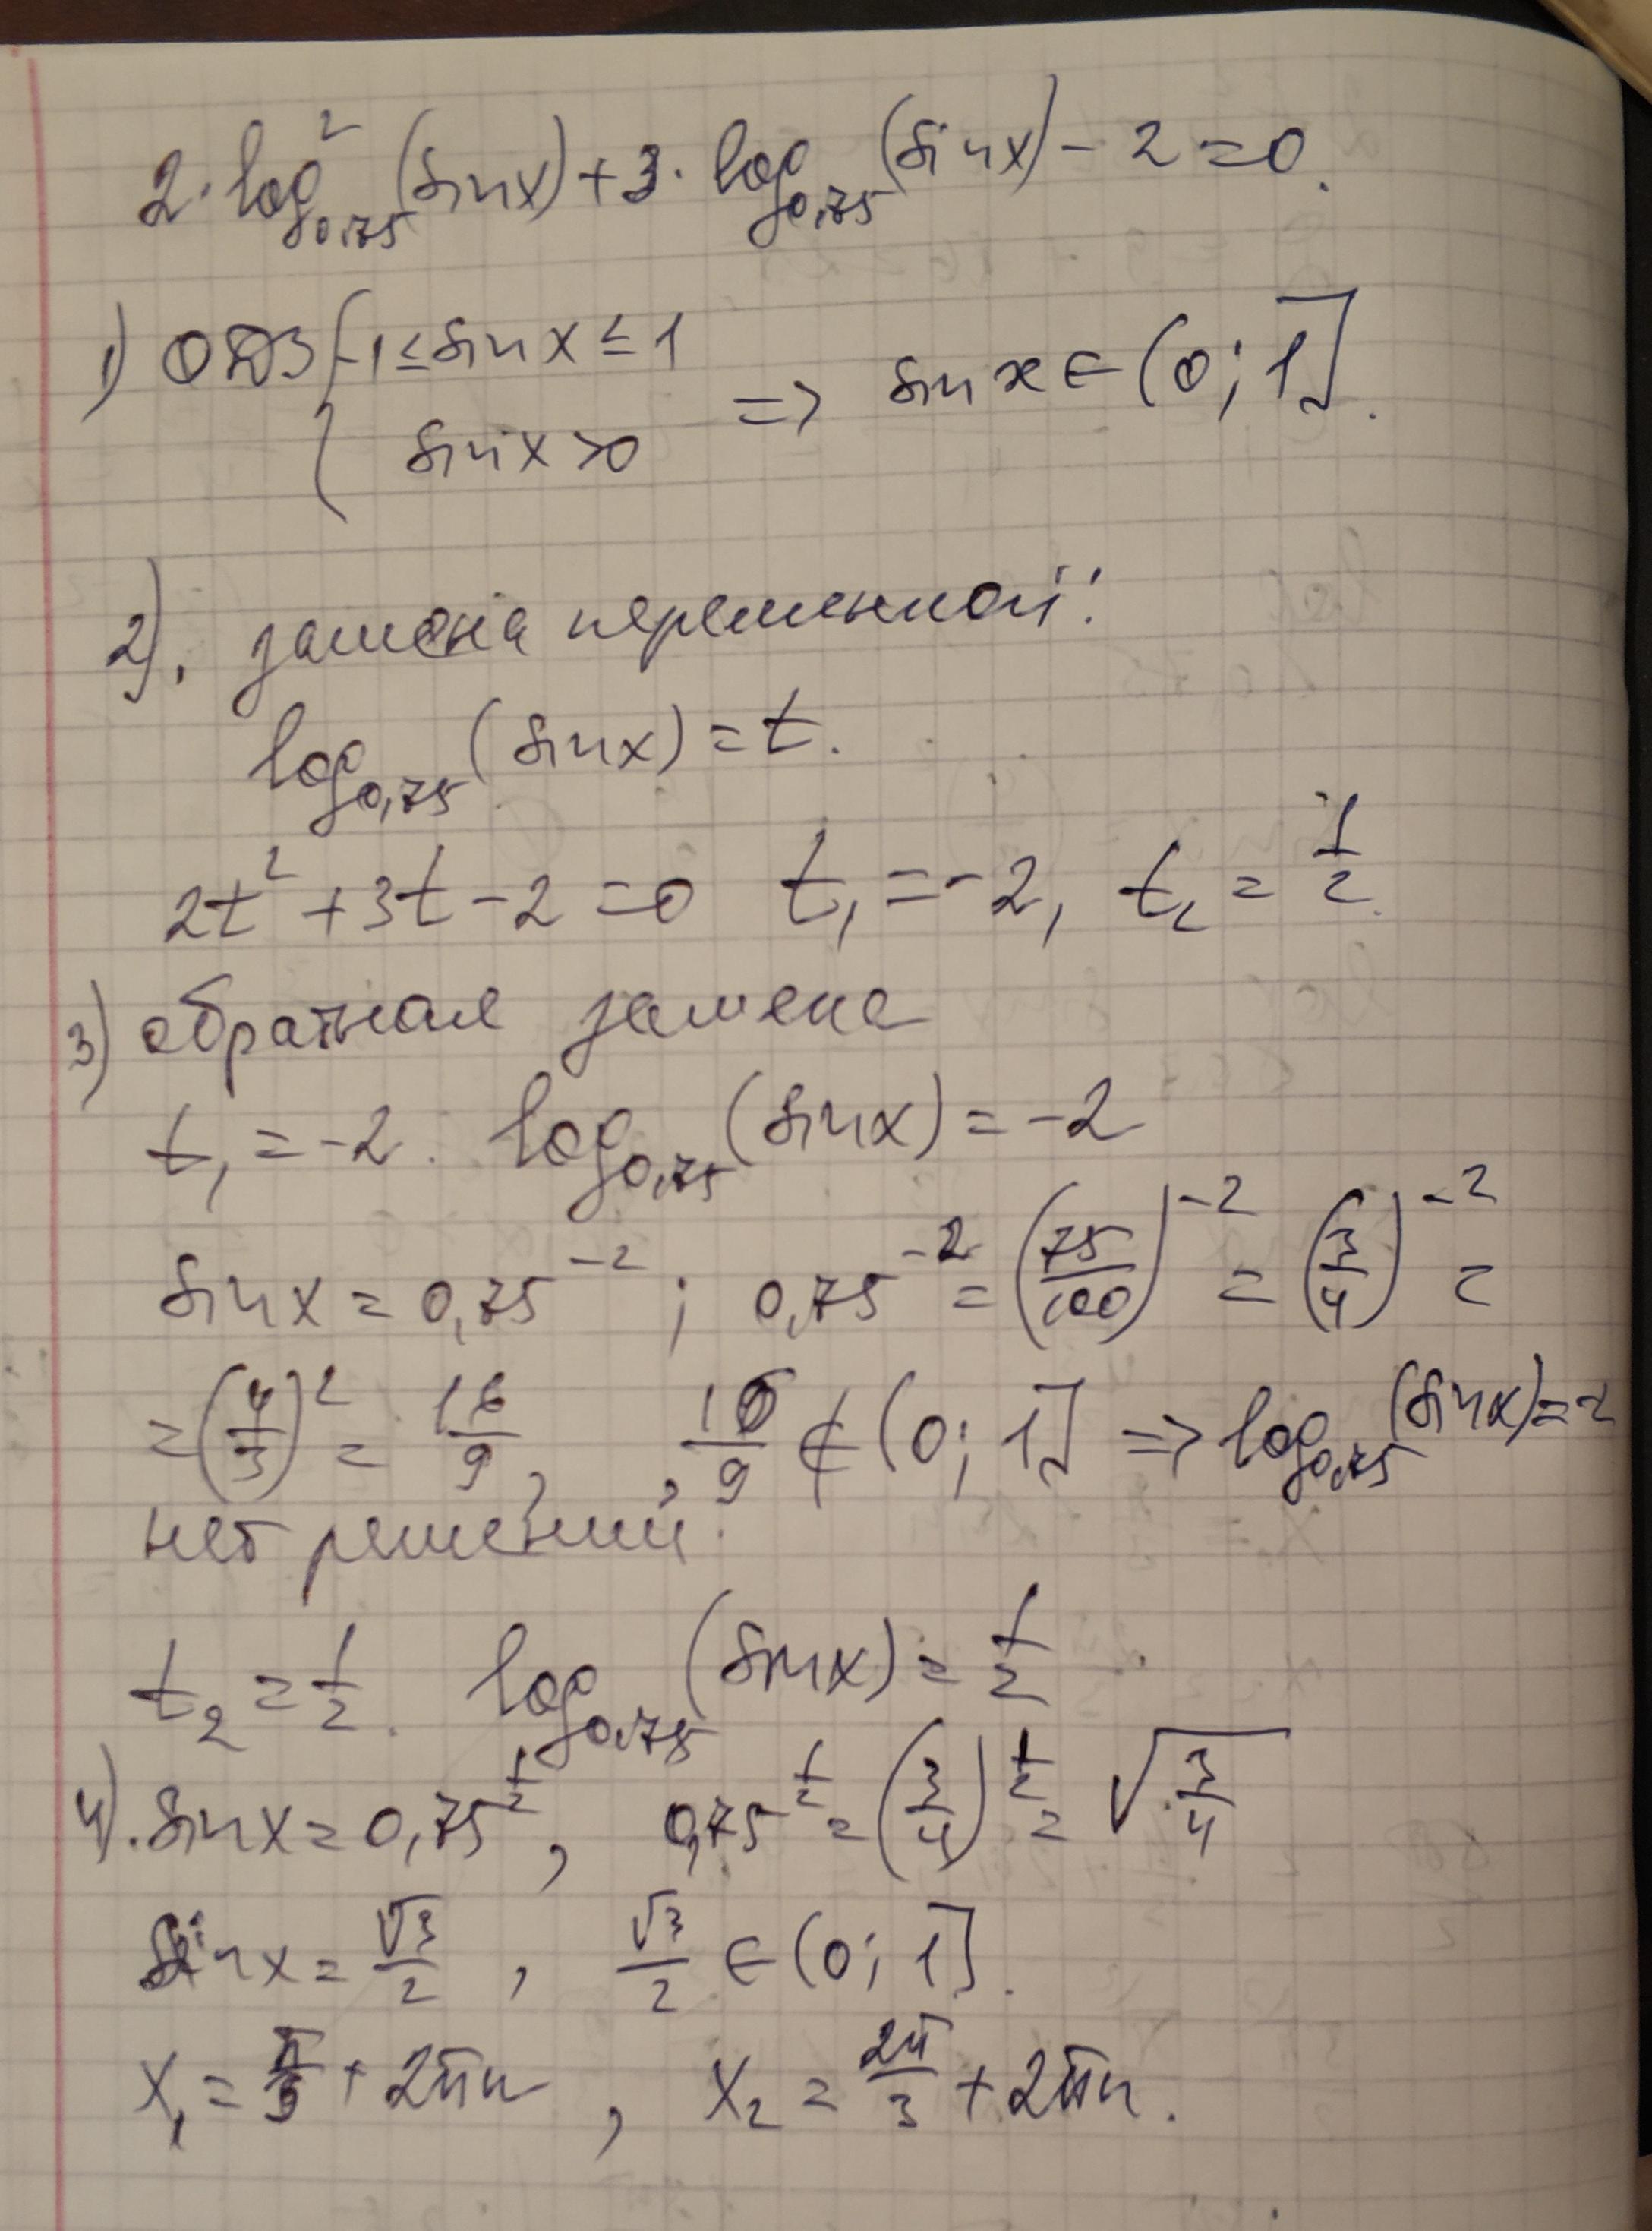 2·log²₀,₇₅(sinx)+3·log₀,₇₅(sinx)-2=0.
1) ОДЗ { -1≤sinx≤1
sinx>0 => sinx∈(0;1].
2). замена переменной:
log₀,₇₅(sinx)=t.
2t²+3t-2=0 t₁=-2, t₂=1/2.
3) обратная замена
t₁=-2. log₀,₇₅(sinx)=-2
sinx=0,75⁻²; 0,75⁻²=(75/100)⁻²=(3/4)⁻²=
=(4/3)²=16/9, , 16/9∉(0;1] => log₀,₇₅(sinx)=-2
нет решений.
t₂=1/2. log₀,₇₅(sinx)=1/2
4). sinx=0,75^(1/2), 0,75^(1/2)=(3/4)^(1/2)=√(3/4)
sinx=√3/2, √3/2∈(0;1].
x₁=π/3+2πn, x₂=2π/3+2πn.